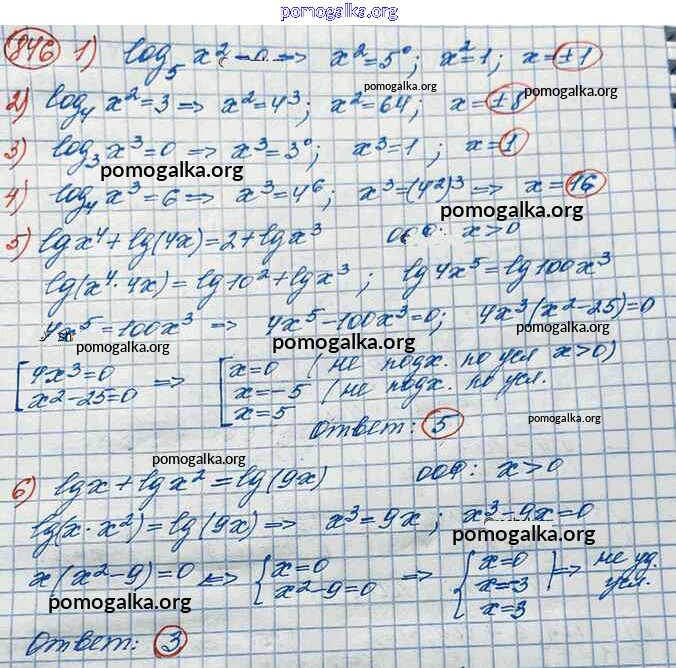 pomogalka.org
846 1) log₅ x² = 0 => x² = 5⁰; x² = 1; x = ±1
pomogalka.org
2) log₄ x² = 3 => x² = 4³; x² = 64; x = ±8
pomogalka.org
3) log₃ x³ = 0 => x³ = 3⁰; x³ = 1; x = 1
pomogalka.org
4) log₄ x³ = 6 => x³ = 4⁶; x³ = (4²)³ => x = 16
pomogalka.org
5) lg x⁴ + lg(4x) = 2 + lg x³ x > 0
lg(x⁴ · 4x) = lg 10² + lg x³; lg 4x⁵ = lg 100x³
4x⁵ = 100x³ => 4x⁵ - 100x³ = 0; 4x³(x² - 25) = 0
pomogalka.org pomogalka.org pomogalka.org
[4x³ = 0 => [x = 0 (не подх. по усл x > 0)
x² - 25 = 0 x = -5 (не подх. по усл.
x = 5
Ответ: 5
pomogalka.org
pomogalka.org
6) lg x + lg x² = lg(9x) ООФ: x > 0
lg(x · x²) = lg(9x) => x³ = 9x; x³ - 9x = 0
pomogalka.org
x(x² - 9) = 0 <=> {x = 0 => {x = 0 } => не уд.
x² - 9 = 0 x = -3 усл.
x = 3
pomogalka.org
Ответ: 3